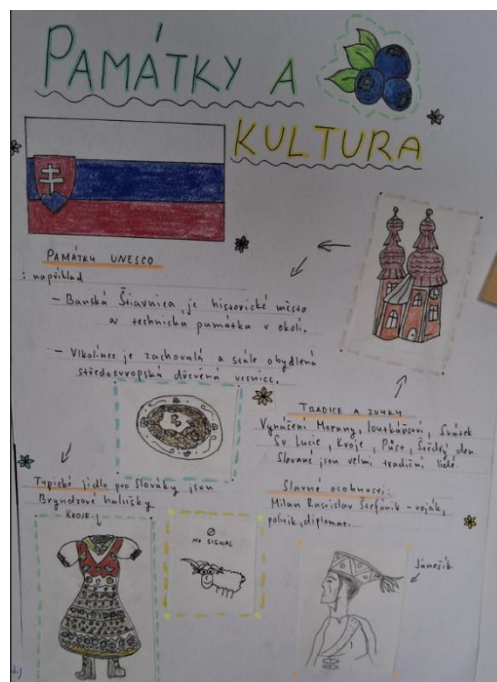 PAMÁTKY A
KULTURA
PAMÁTKY UNESCO
: například
- Banská Štiavnica je historické město
a technická památka v okolí.
- Vlkolínec je zachovalá a stále obydlená
středoevropská dřevěná vesnice.
TRADICE A ZVYKY
Vynášení Morany, loutkářství, Svátek
Sv. Lucie, Kroje, Půst, Štědrý den.
Slované jsou velmi tradiční lidé.
Typické jídlo pro Slováky jsou
Bryndzové halušky
Slavné osobnosti:
Milan Rastislav Štefánik - voják,
politik, diplomat.
KROJE
NO SIGNAL
Jánošík